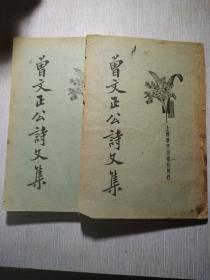 曾文正公詩文集
曾文正公詩文集